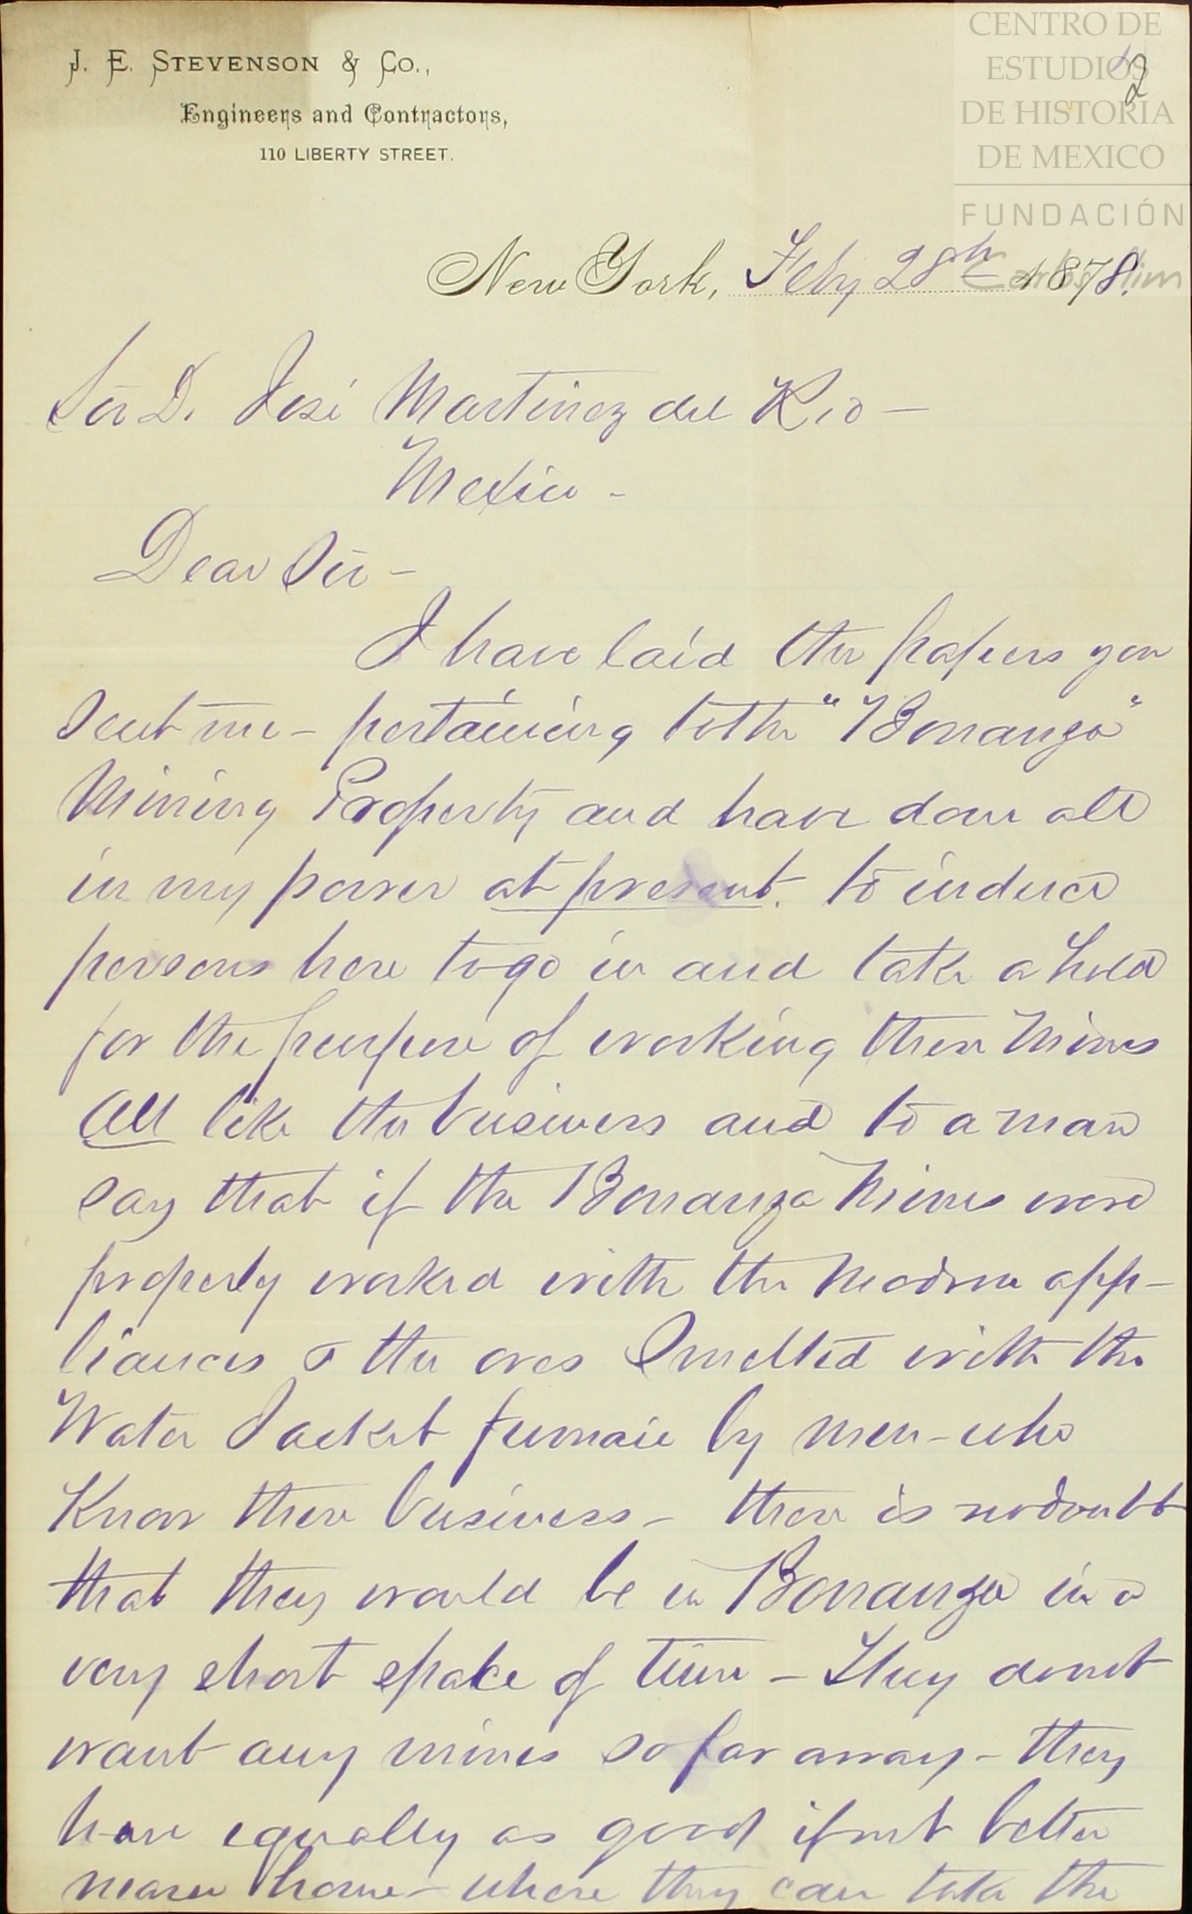 J. E. STEVENSON & CO.,
Engineers and Contractors,
110 LIBERTY STREET.
CENTRO DE
ESTUDIOS
DE HISTORIA
DE MEXICO
FUNDACIÓN
Carlos Slim
2
New York, Feby 28th 1878.
Sor D. José Martinez del Rio —
Mexico -
Dear Sir -
I have laid the papers you
sent me - pertaining to the "Bonanza"
Mining Property and have done all
in my power at present. to induce
persons here to go in and take a hold
for the purpose of working these Mines
All like the business and to a man
say that if the Bonanza Mines were
properly worked with the Modern app-
liances & the ores Smelted with the
Water Jacket furnace by men - who
Know there business - there is no doubt
that they would be in Bonanza in a
very short space of time - They do not
want any mines so far away - they
have equally as good if not better
nearer home - where they can take the